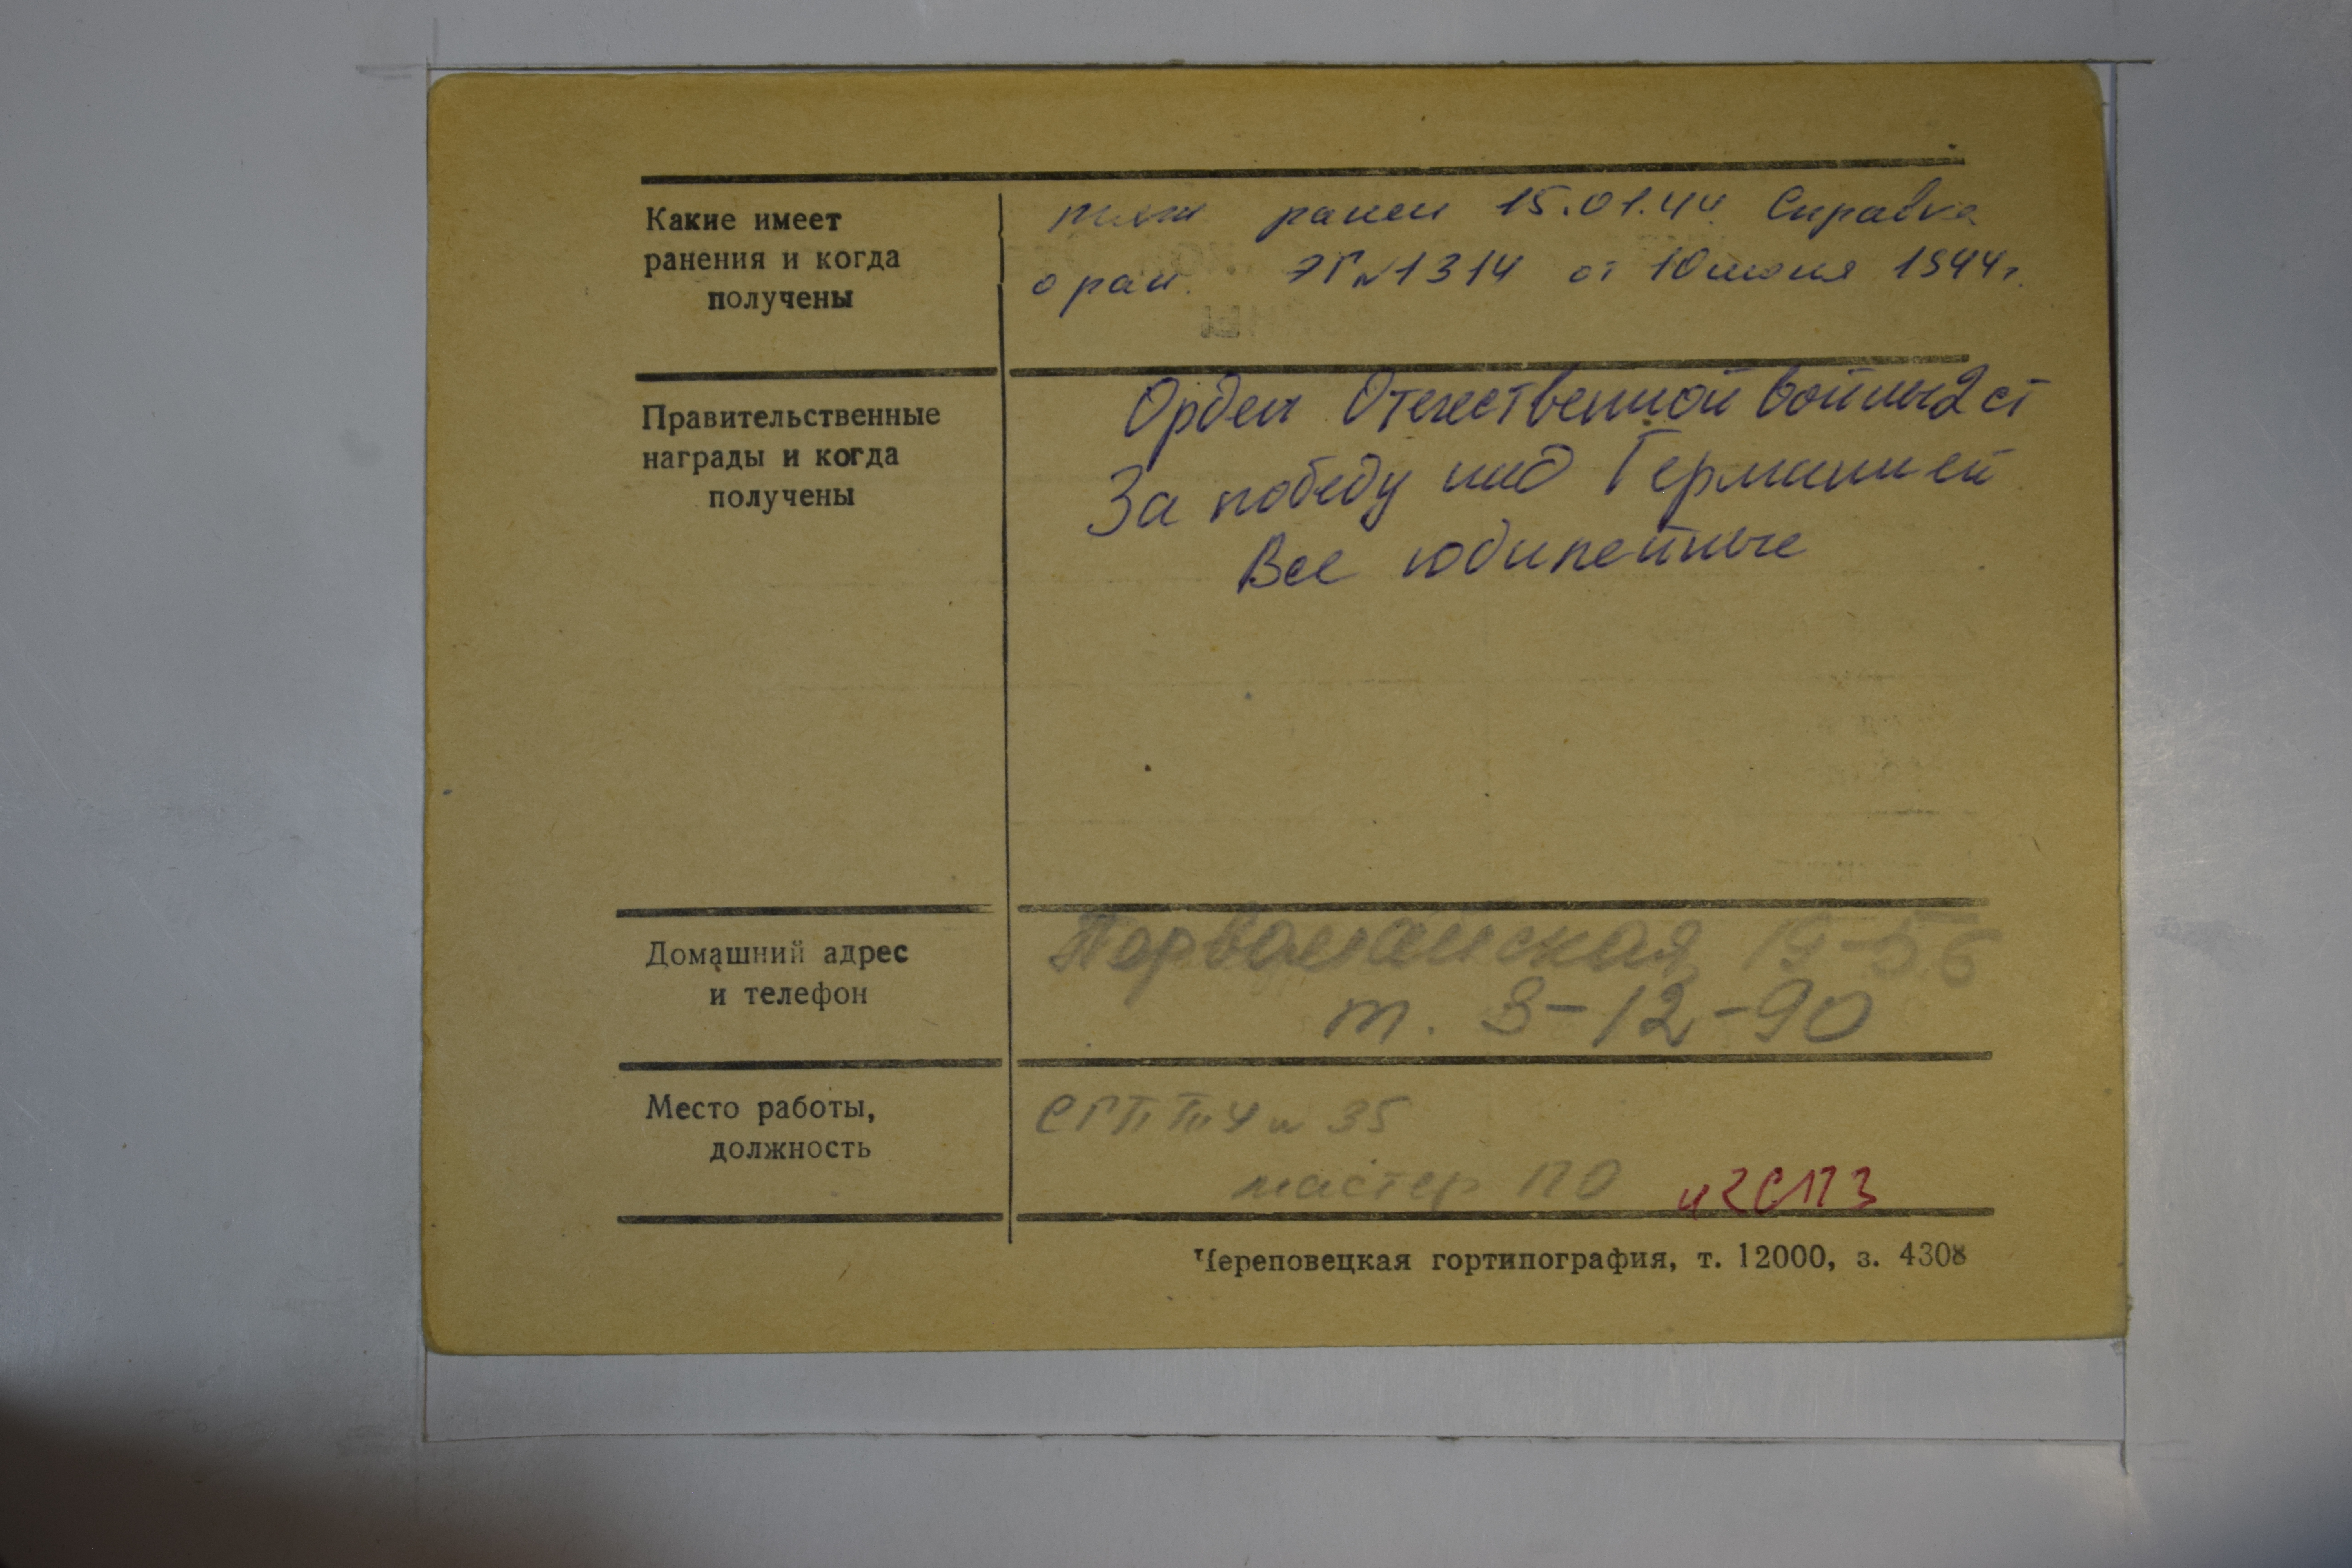 Какие имеет
ранения и когда
получены
тяж ранен 15.01.44 Справка
о ран. ЭГ №1314 от 10 июня 1944г.
Правительственные
награды и когда
получены
Орден Отечественной войны 2 ст
За победу над Германией
Все юбилейные
Домашний адрес
и телефон
Первомайская 19-56
т. 3-12-90
Место работы,
должность
СГПТУ № 35
мастер ПО
Череповецкая гортипография, т. 12000, з. 4308